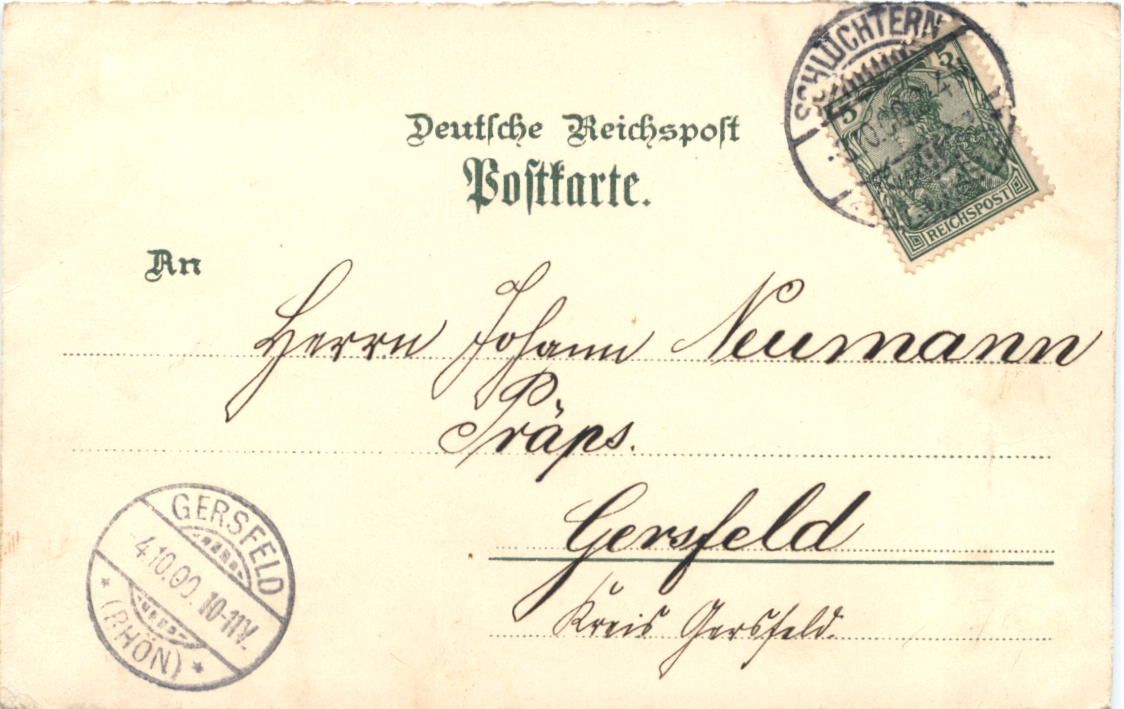 SCHLÜCHTERN
5 5
REICHSPOST
Deutsche Reichspost
Postkarte.
An
Herrn Johann Neumann
Präps.
Gersfeld
Kreis Gersfeld.
GERSFELD
4.10.00. 10-11V.
* (RHÖN) *